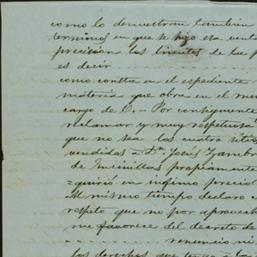 como lo demuestran tambien
terminos en que se hizo esa venta
precision los linderos de las
es decir
como consta en el expediente
materia que obra en el
cargo de U. Por consiguiente
reclamar y muy respetuosa
que no sea los cuatro sitios
vendidas a Dn. Jesus Zambra
de propiamente
quirió en infimo precio
Al mismo tiempo declaro
respeto que no por aprovecha
me favorece del decreto de
renuncio ni
los derechos que tengo a